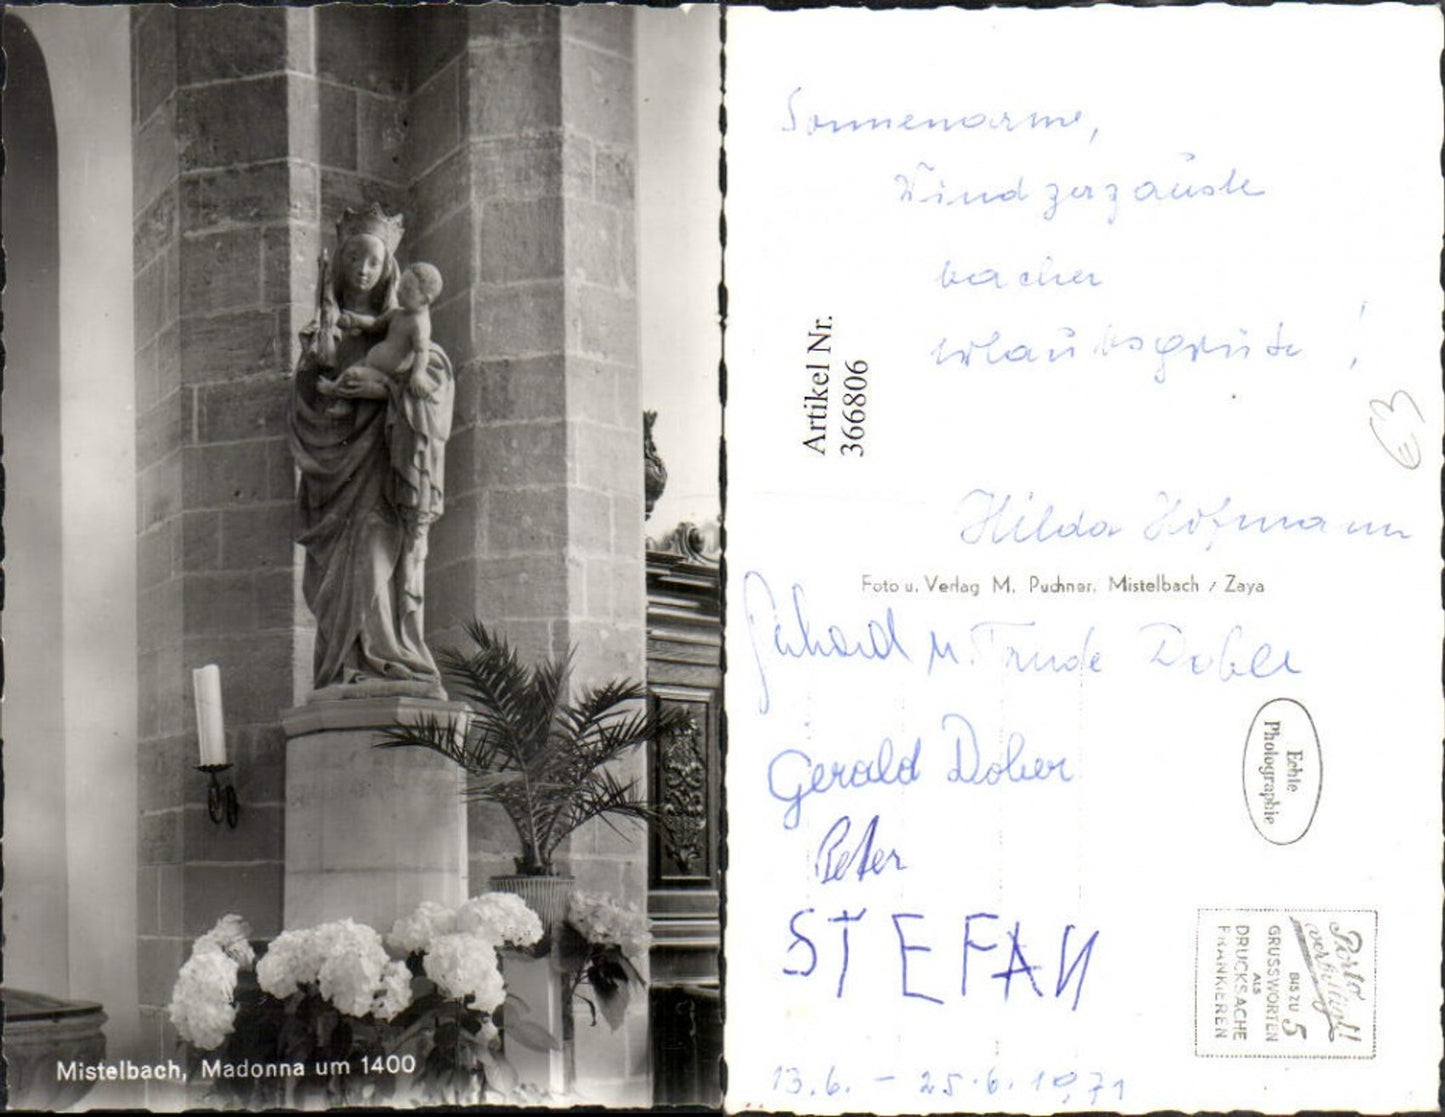 Mistelbach, Madonna um 1400
Sonnenarme,
Windzerzauste
Urlaubsgrüße !
Artikel Nr.
366806
€3
Hilda Hofmann
Foto u. Verlag M. Puchner, Mistelbach / Zaya
Gerhard u. Trude Dober
Gerald Dober
Peter
STEFAN
13.6. – 25.6.1971
Echte
Photographie
Porto
verbilligt!
BIS ZU 5
GRUSSWORTEN
ALS
DRUCKSACHE
FRANKIEREN